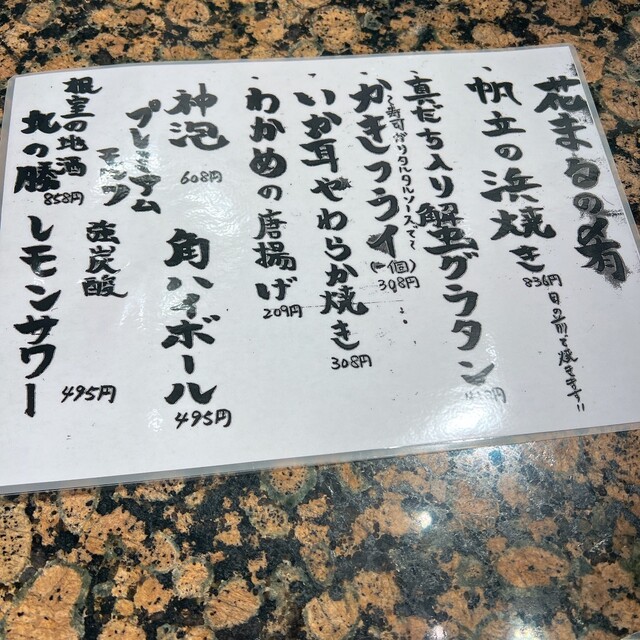 花まるの肴
帆立の浜焼き
836円
目の前で焼きます!!
真だち入り蟹グラタン
かきフライ(一個)
308円
いか耳やわらか焼き
308円
わかめの唐揚げ
209円
神泡
プレミアム
モルツ
608円
角ハイボール
495円
根室の地酒
北の勝
858円
強炭酸
レモンサワー
495円